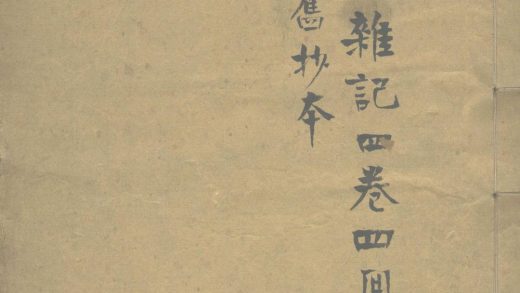 雜記四卷四
舊抄本